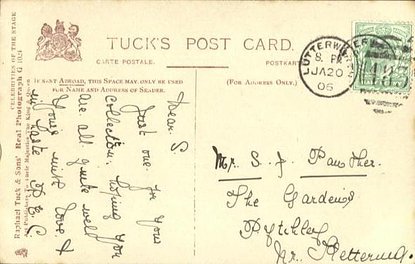 TUCK'S POST CARD.
CARTE POSTALE.
POSTKARTE
(FOR ADDRESS ONLY.)
IF SENT ABROAD, THIS SPACE MAY ONLY BE USED
FOR NAME AND ADDRESS OF SENDER.
CELEBRITIES OF THE STAGE
Raphael Tuck & Sons' Real Photograph G
LUTTERW
8. PM
JA 20
06
Dear S.
Just one for your
collection, hoping you
are all quite well
Yours with love.
Mr. S. J. Panther.
The Gardens
Pytchley
Nr. Kettering